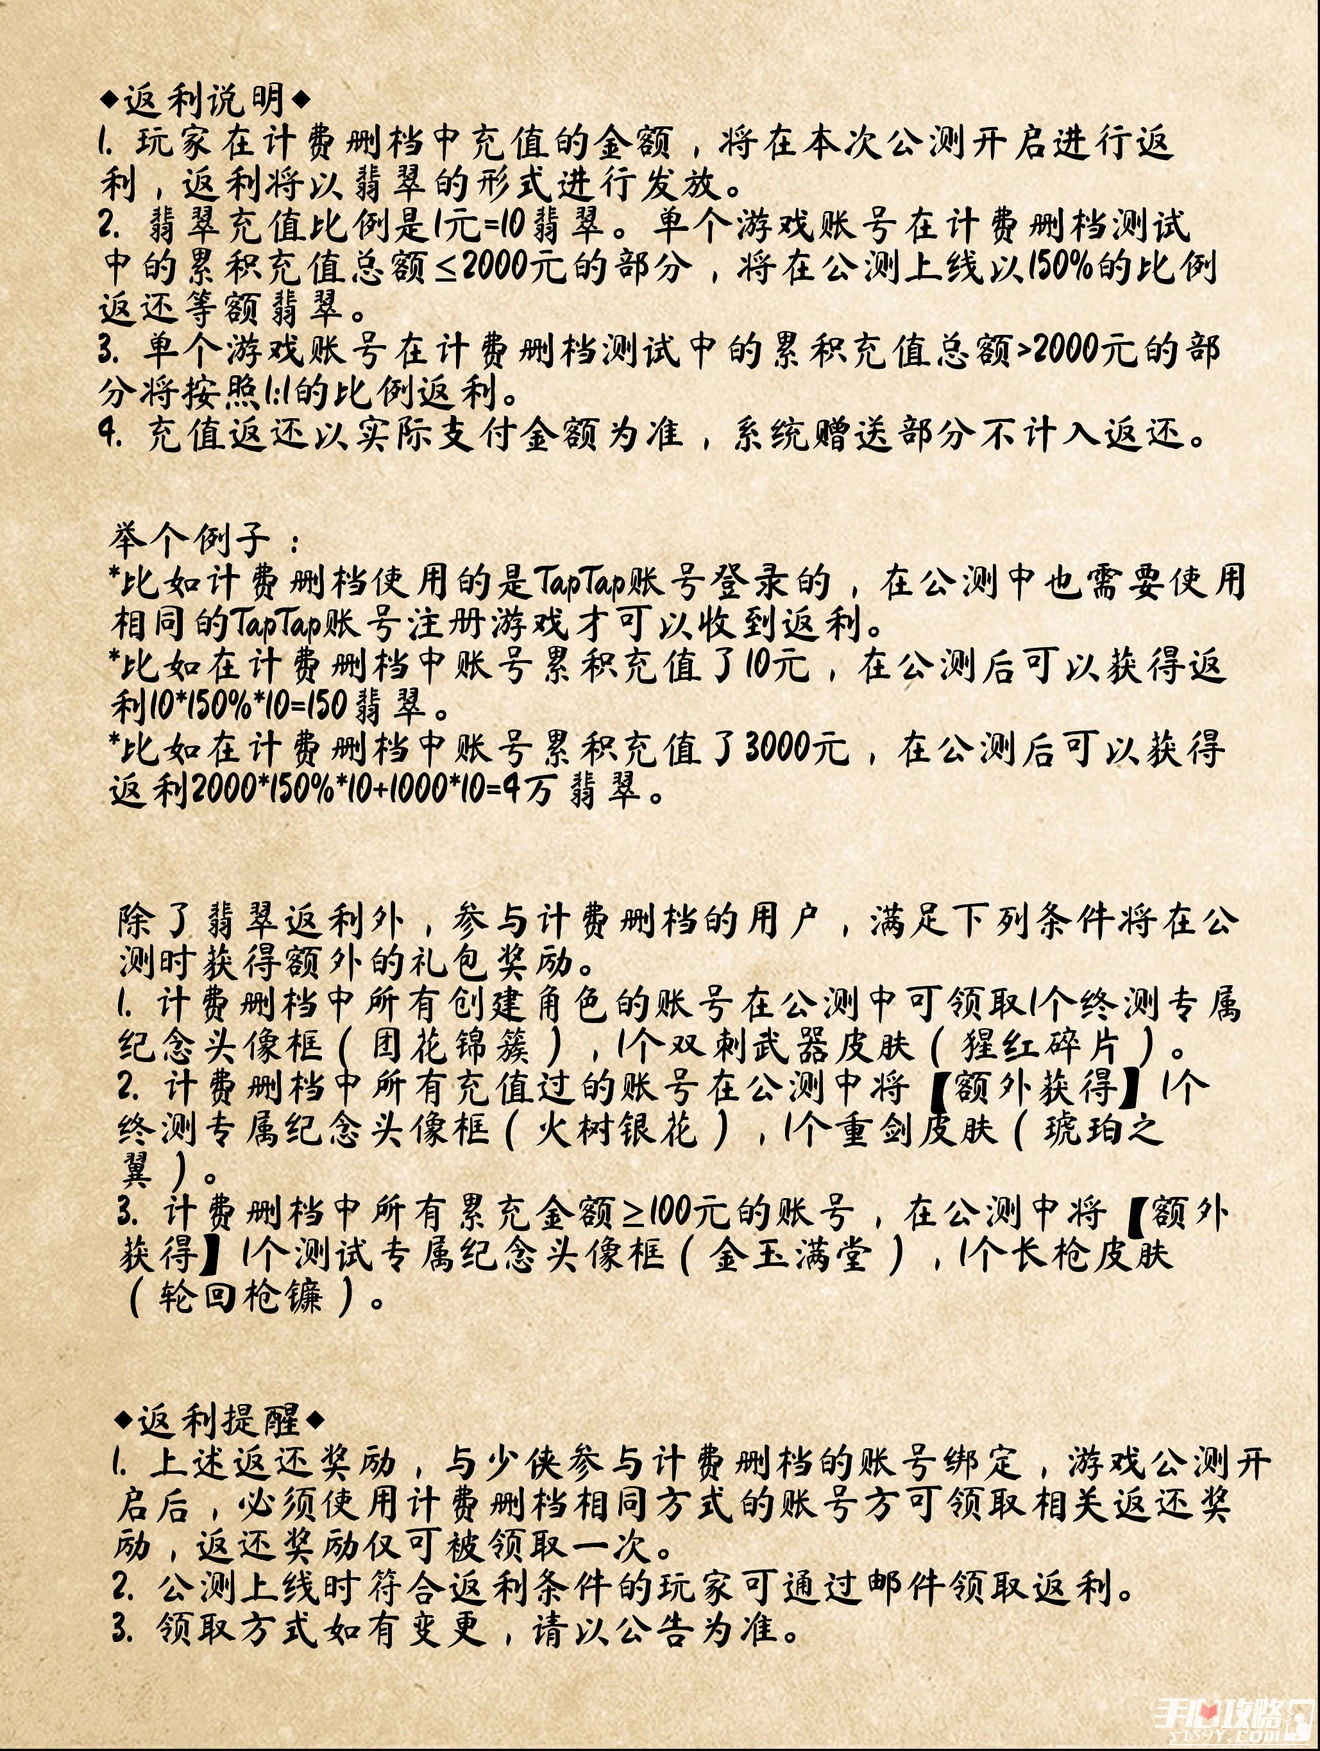 ◆返利说明◆
1. 玩家在计费删档中充值的金额，将在本次公测开启进行返
利，返利将以翡翠的形式进行发放。
2. 翡翠充值比例是1元=10翡翠。单个游戏账号在计费删档测试
中的累积充值总额≤2000元的部分，将在公测上线以150%的比例
返还等额翡翠。
3. 单个游戏账号在计费删档测试中的累积充值总额>2000元的部
分将按照1:1的比例返利。
4. 充值返还以实际支付金额为准，系统赠送部分不计入返还。
举个例子：
*比如计费删档使用的是TapTap账号登录的，在公测中也需要使用
相同的TapTap账号注册游戏才可以收到返利。
*比如在计费删档中账号累积充值了10元，在公测后可以获得返
利10*150%*10=150翡翠。
*比如在计费删档中账号累积充值了3000元，在公测后可以获得
返利2000*150%*10+1000*10=4万翡翠。
除了翡翠返利外，参与计费删档的用户，满足下列条件将在公
测时获得额外的礼包奖励。
1. 计费删档中所有创建角色的账号在公测中可领取1个终测专属
纪念头像框（团花锦簇），1个双刺武器皮肤（猩红碎片）。
2. 计费删档中所有充值过的账号在公测中将【额外获得】1个
终测专属纪念头像框（火树银花），1个重剑皮肤（琥珀之
翼）。
3. 计费删档中所有累充金额≥100元的账号，在公测中将【额外
获得】1个测试专属纪念头像框（金玉满堂），1个长枪皮肤
（轮回枪镰）。
◆返利提醒◆
1. 上述返还奖励，与少侠参与计费删档的账号绑定，游戏公测开
启后，必须使用计费删档相同方式的账号方可领取相关返还奖
励，返还奖励仅可被领取一次。
2. 公测上线时符合返利条件的玩家可通过邮件领取返利。
3. 领取方式如有变更，请以公告为准。
手心攻略
SI59Y.COM